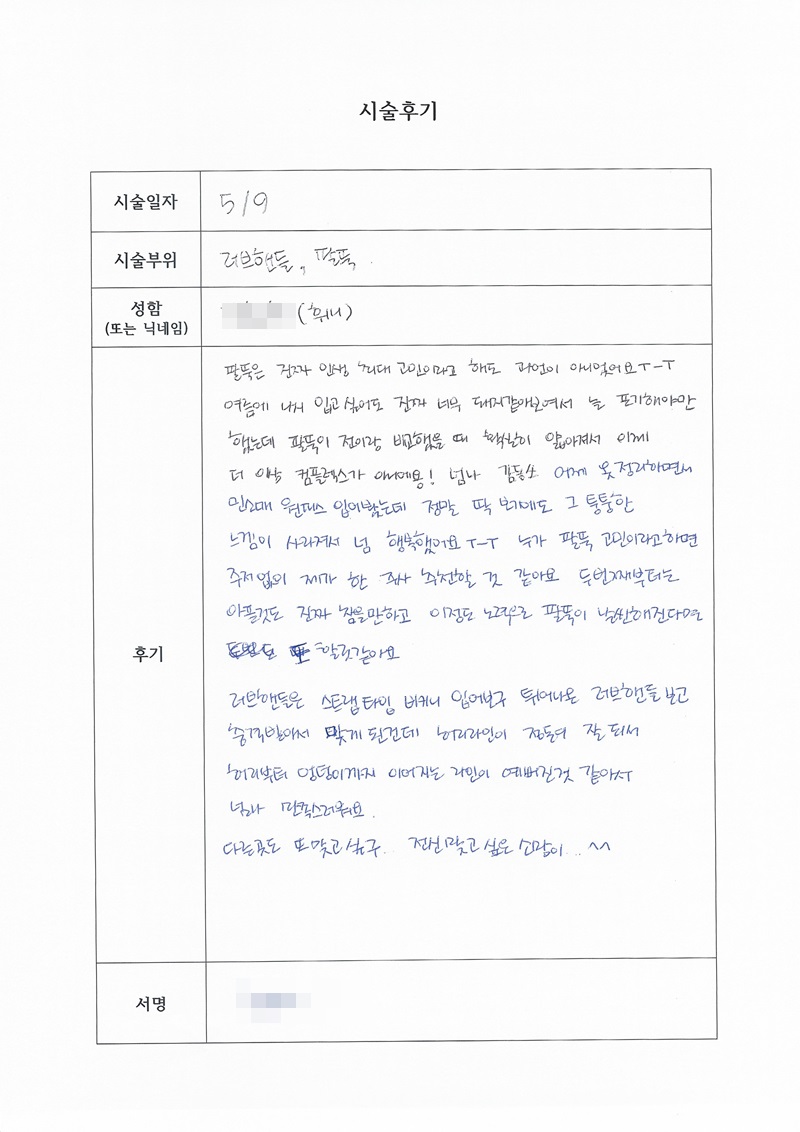 시술후기
시술일자 5/9
시술부위 러브핸들, 팔뚝.
성함 (휘니)
(또는 닉네임)
팔뚝은 진짜 인생 최대 고민이라고 해도 과언이 아니었어요ㅜ-ㅜ
여름에 나시 입고 싶어도 진짜 너무 돼지같아보여서 늘 포기해야만
했는데 팔뚝이 전이랑 비교했을 때 확실히 얇아져서 이제
더 이상 컴플렉스가 아니에용! 넘나 감동쓰 어제 옷정리하면서
민소매 원피스 입어봤는데 정말 딱 보기에도 그 퉁퉁한
느낌이 사라져서 넘 행복했어요ㅜ-ㅜ 누가 팔뚝 고민이라고하면
주저없이 제가 한 주사 추천할 것 같아요 두번째부터는
아픈것도 진짜 참을만하고 이정도 노력으로 팔뚝이 날씬해진다면
또 할것같아요
러브핸들은 스트랩타입 비키니 입어보구 튀어나온 러브핸들 보고
충격받아서 맞게 된건데 허리라인이 정돈이 잘 되서
허리부터 엉덩이까지 이어지는 라인이 예뻐진것 같아서
넘나 만족스러워요.
다른곳도 또 맞고 싶구.. 전신 맞고 싶은 심정이... ^^
후기
서명